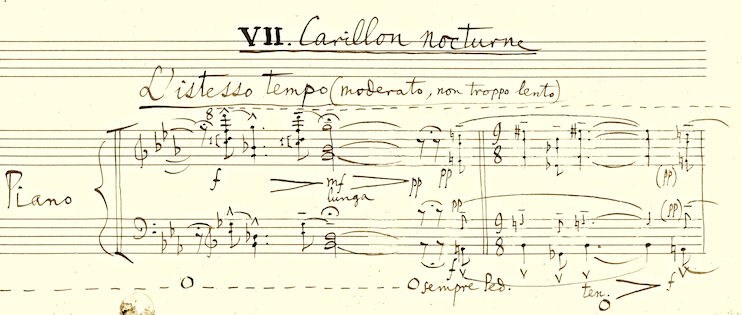 VII. Carillon nocturne
L'istesso tempo (moderato, non troppo lento)
8
f mf pp pp (pp)
lunga
Piano
9
8
pp (pp)
9
8
f f
sempre Ped. ten.